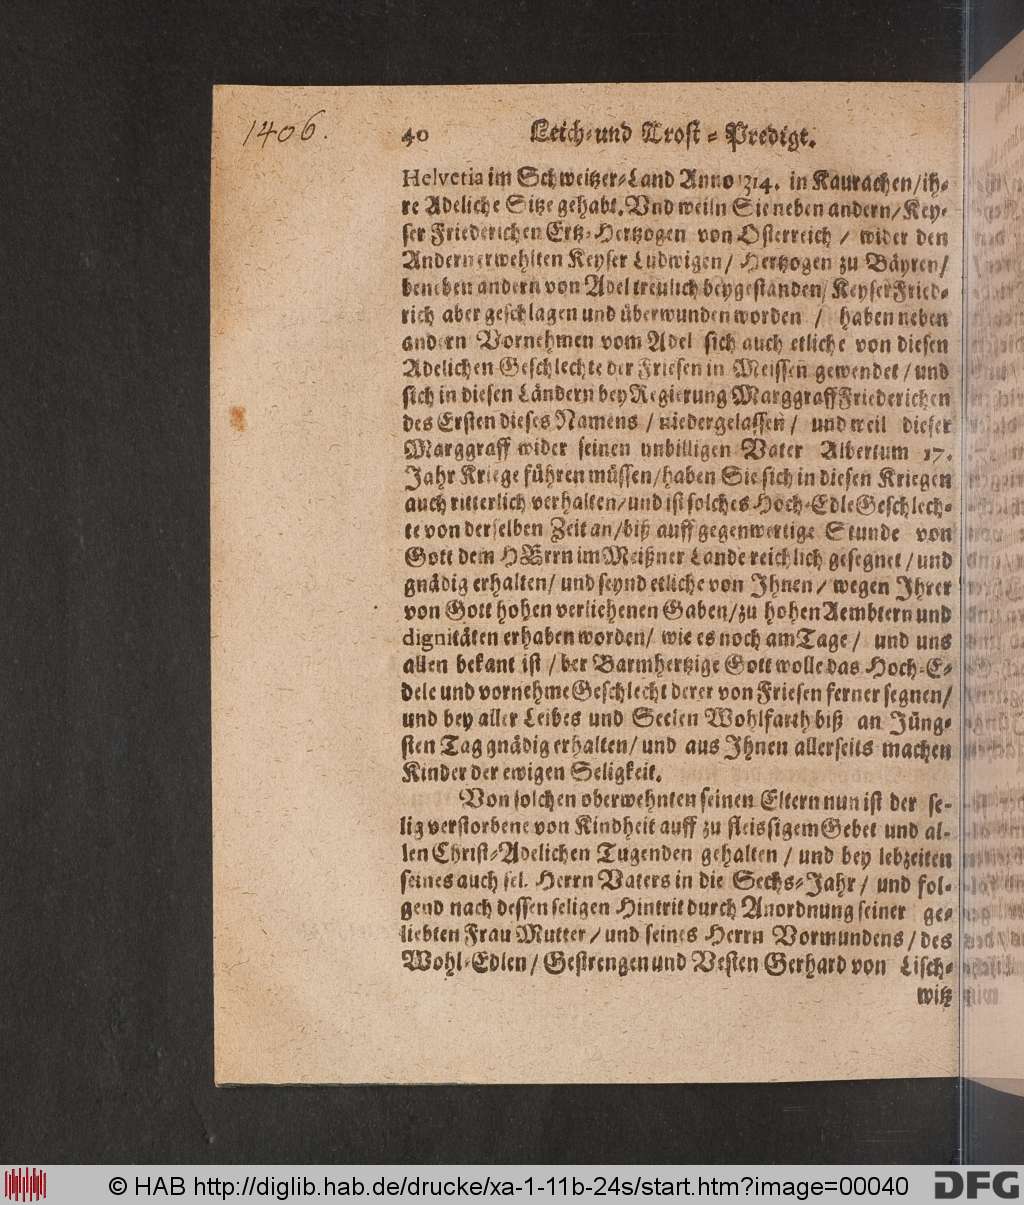 1406.
40 Leich-und Trost-Predigt.
Helvetia im Schweitzer-Land Anno 1314. in Kaurachen/ih-
re Adeliche Sitze gehabt. Vnd weiln Sie neben andern/Key-
ser Friederichen Ertz-Hertzogen von Osterreich / wider den
Andern erwehlten Keyser Ludwigen/ Hertzogen zu Bäyren/
beneben andern von Adel treulich beygestanden/ Keyser Fried-
rich aber geschlagen und überwunden worden / haben neben
andern Vornehmen vom Adel sich auch etliche von diesen
Adelichen Geschlechte der Friesen in Meissen gewendet / und
sich in diesen Ländern bey Regierung Marggraff Friederichen
des Ersten dieses Namens / niedergelassen / und weil dieser
Marggraff wider seinen unbilligen Vater Albertum 17.
Jahr Kriege führen müssen/haben Sie sich in diesen Kriegen
auch ritterlich verhalten/und ist solches Hoch-Edle Geschlech-
te von derselben Zeit an/biß auff gegenwertige Stunde von
Gott dem HErrn im Meißner Lande reichlich gesegnet / und
gnädig erhalten/ und seynd etliche von Ihnen / wegen Ihrer
von Gott hohen verliehenen Gaben/zu hohen Aembtern und
dignitäten erhaben worden/ wie es noch am Tage / und uns
allen bekant ist / der Barmhertzige Gott wolle das Hoch-E-
dele und vornehme Geschlecht derer von Friesen ferner segnen/
und bey aller Leibes und Seelen Wohlfarth biß an Jüng-
sten Tag gnädig erhalten/ und aus Ihnen allerseits machen
Kinder der ewigen Seligkeit.
Von solchen oberwehnten seinen Eltern nun ist der se-
lig verstorbene von Kindheit auff zu fleissigem Gebet und al-
len Christ-Adelichen Tugenden gehalten / und bey lebzeiten
seines auch sel. Herrn Vaters in die Sechs-Jahr / und fol-
gend nach dessen seligen Hintrit durch Anordnung seiner ge-
liebten Frau Mutter / und seines Herrn Vormundens / des
Wohl-Edlen / Gestrengen und Vesten Gerhard von Lisch-
witz
© HAB http://diglib.hab.de/drucke/xa-1-11b-24s/start.htm?image=00040
DFG